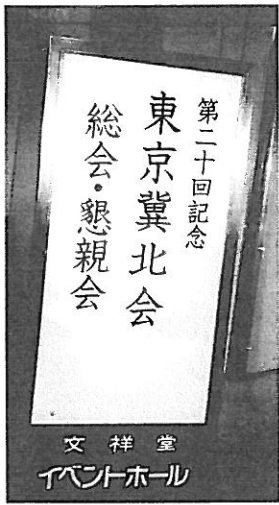 第二十回記念
東京冀北会
総会・懇親会
文祥堂
イベントホール